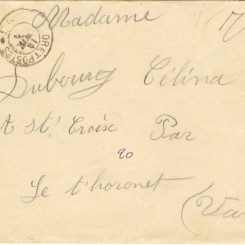 Madame
Dubourg Célina
A St Croix Par
20
Le t'horonet
(Var